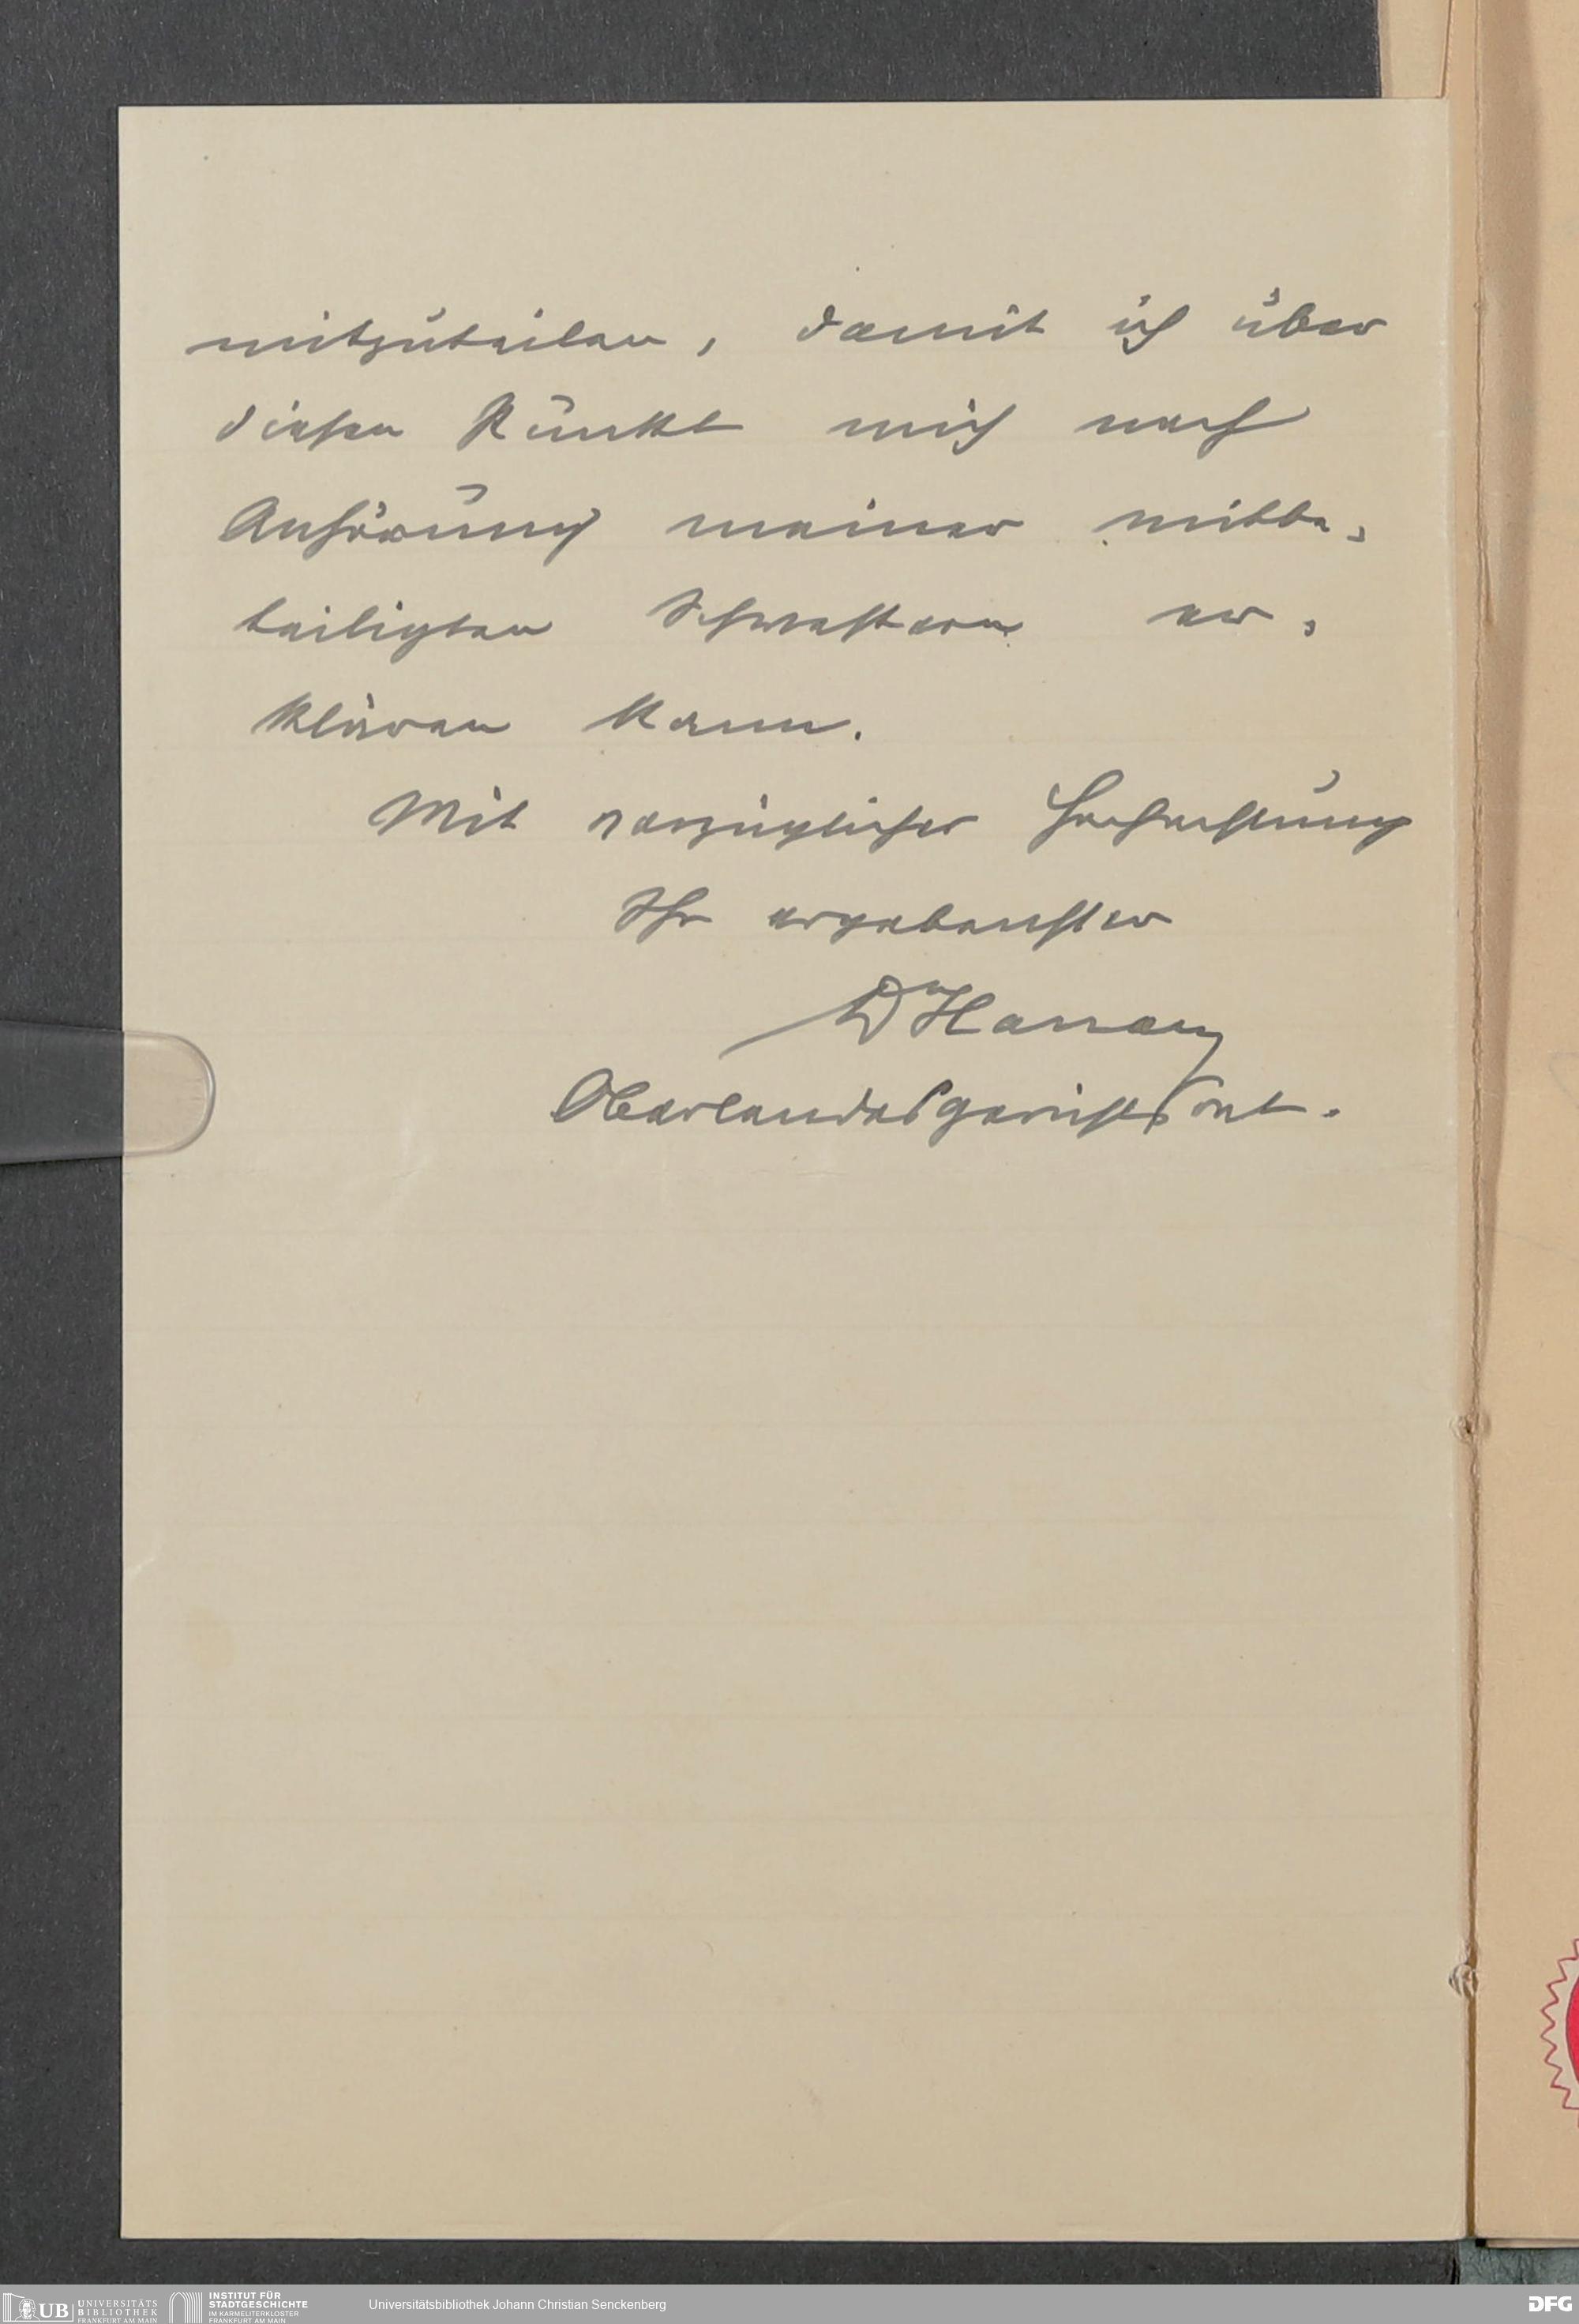 mitzuteilen, damit ich über
diesen Punkt mich nach
Anhörung meiner mitbe-
teiligten Schwestern er-
klären kann.
Mit vorzüglicher Hochachtung
Ihr ergebenster
Dr
Oberlandesgerichtsrat.
UB UNIVERSITÄTS BIBLIOTHEK FRANKFURT AM MAIN
INSTITUT FÜR STADTGESCHICHTE IM KARMELITERKLOSTER FRANKFURT AM MAIN
Universitätsbibliothek Johann Christian Senckenberg
DFG